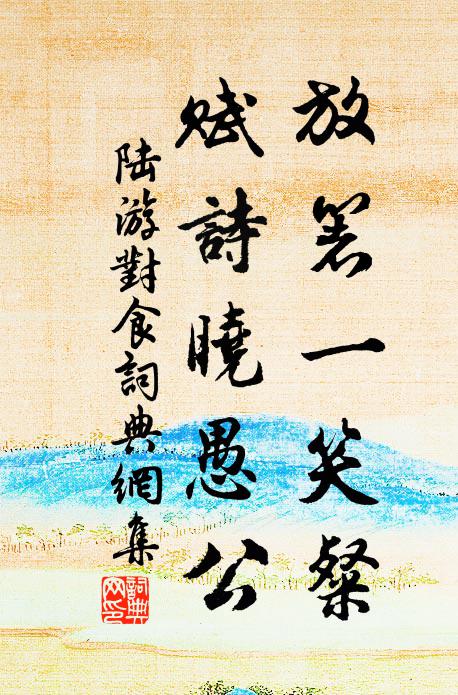 放箸一笑粲
賦詩曉愚公
陸游對食詞典網集
詞典網印